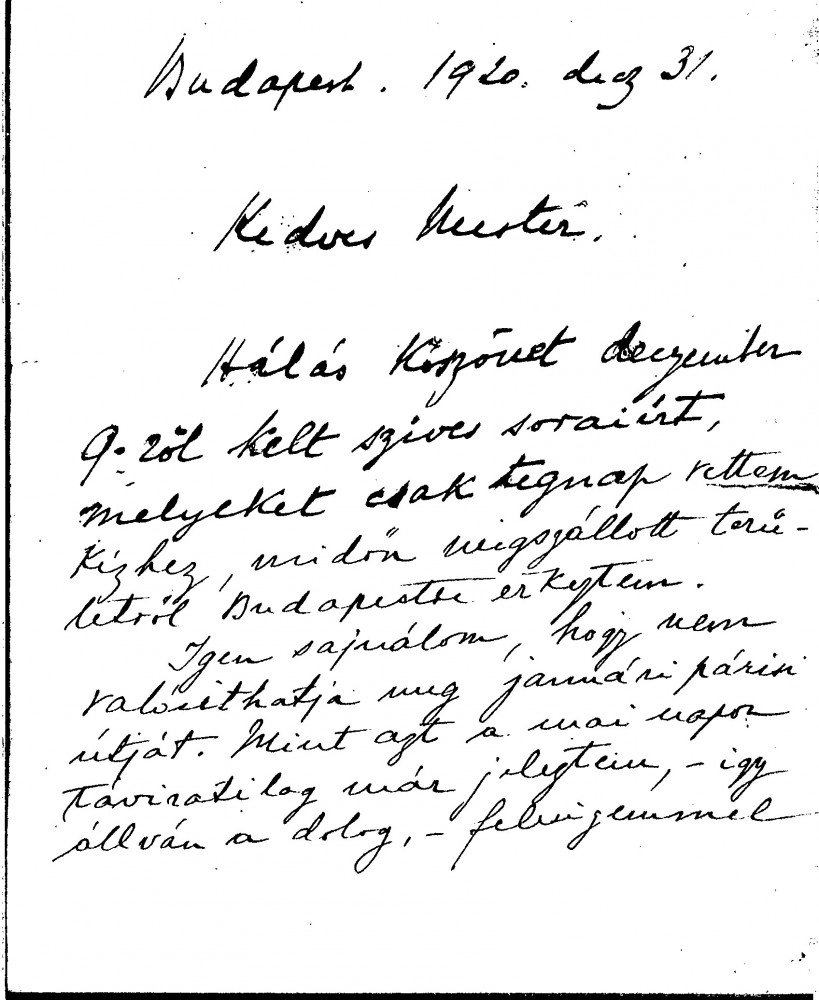 Budapest. 1920. decz 31.
Kedves Mester.
Hálás köszönet deczember
9-ről kelt szives soraiért,
melyeket csak tegnap vettem
kézhez, midőn megszállott terü-
letről Budapestre érkeztem.
Igen sajnálom, hogy nem
valósithatja meg januári párisi
útját. Mint azt a mai napon
táviratilag már jeleztem, – igy
állván a dolog, – feleségemmel